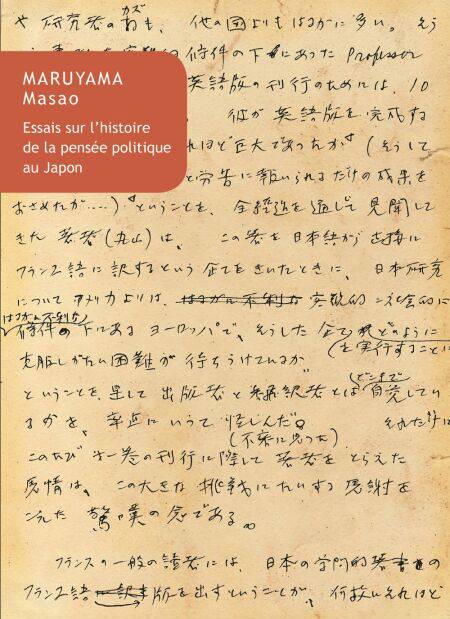 や研究者の数も、他の国よりもはるかに多い。そう
条件の下にあった Professor
MARUYAMA
Masao
Essais sur l’histoire
de la pensée politique
au Japon
英語版の刊行のためには、10
彼が英語版を完成する
れほど巨大であったか（そうして
と労苦に報いられるだけの成果を
おさめたが……）ということを、全経過を通じて見聞して
きた著者（丸山）は、この書を日本語から直接に
フランス語に訳するという企てをきいたときに、日本研究
についてアメリカよりは、はるかに不利な 実質的
はるかに不利な
条件の下にあるヨーロッパで、そうした企て
どのように
を実行することに
克服しがたい困難が待ちうけているか
ということを
出版者と
どこまで
自覚してい
るかを、率直にいって怪しんだ。
それだけに
（不幸に
このたび 第一巻の刊行に際して著者をとらえた
感情は、この大きな挑戦にたいする感謝を
こえた驚嘆の念である。
フランスの一般の読者には、日本の学問的 著書の
フランス語 訳 版を出すということが、何故いそれほど